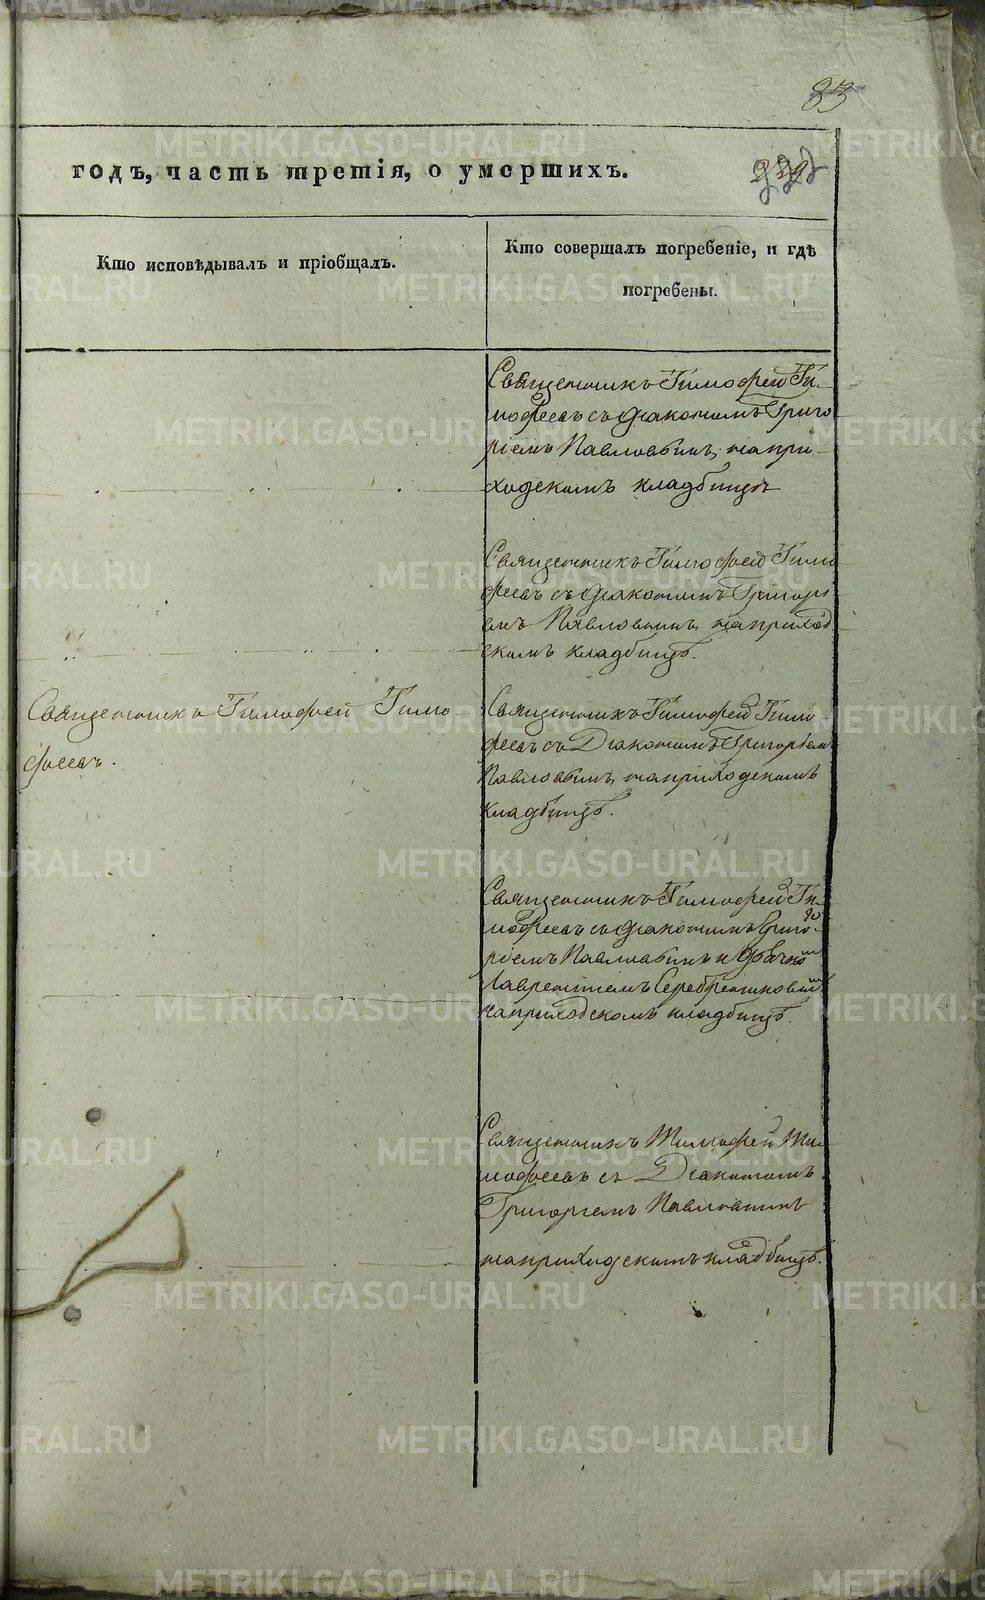 83
годъ, часть третія, о умершихъ.
Кто исповѣдывалъ и пріобщалъ.
Кто совершалъ погребеніе, и гдѣ
погребены.
Священникъ Тимофей Ти-
мофеевъ съ діакономъ Григо
ріемъ Павловымъ, на при-
ходскомъ кладбищѣ
Священникъ Тимофей Тимо
феевъ съ діакономъ Григорі
емъ Павловымъ, на приход
скомъ кладбищѣ.
Священникъ Тимофей Тимо
феевъ.
Священникъ Тимофей Тимо
феевъ съ Діакономъ Григоріемъ
Павловымъ, на приходскомъ
кладбищѣ.
Священникъ Тимофей Ти-
мофеевъ съ діакономъ Григо-
ріемъ Павловымъ и
Лаврентіемъ Серебренниковым
на приходскомъ кладбищѣ.
Священникъ Тимофей Ти-
мофеевъ съ Діакономъ
Григоріемъ Павловымъ
на приходскомъ кладбищѣ.
METRIKI.GASO-URAL.RU